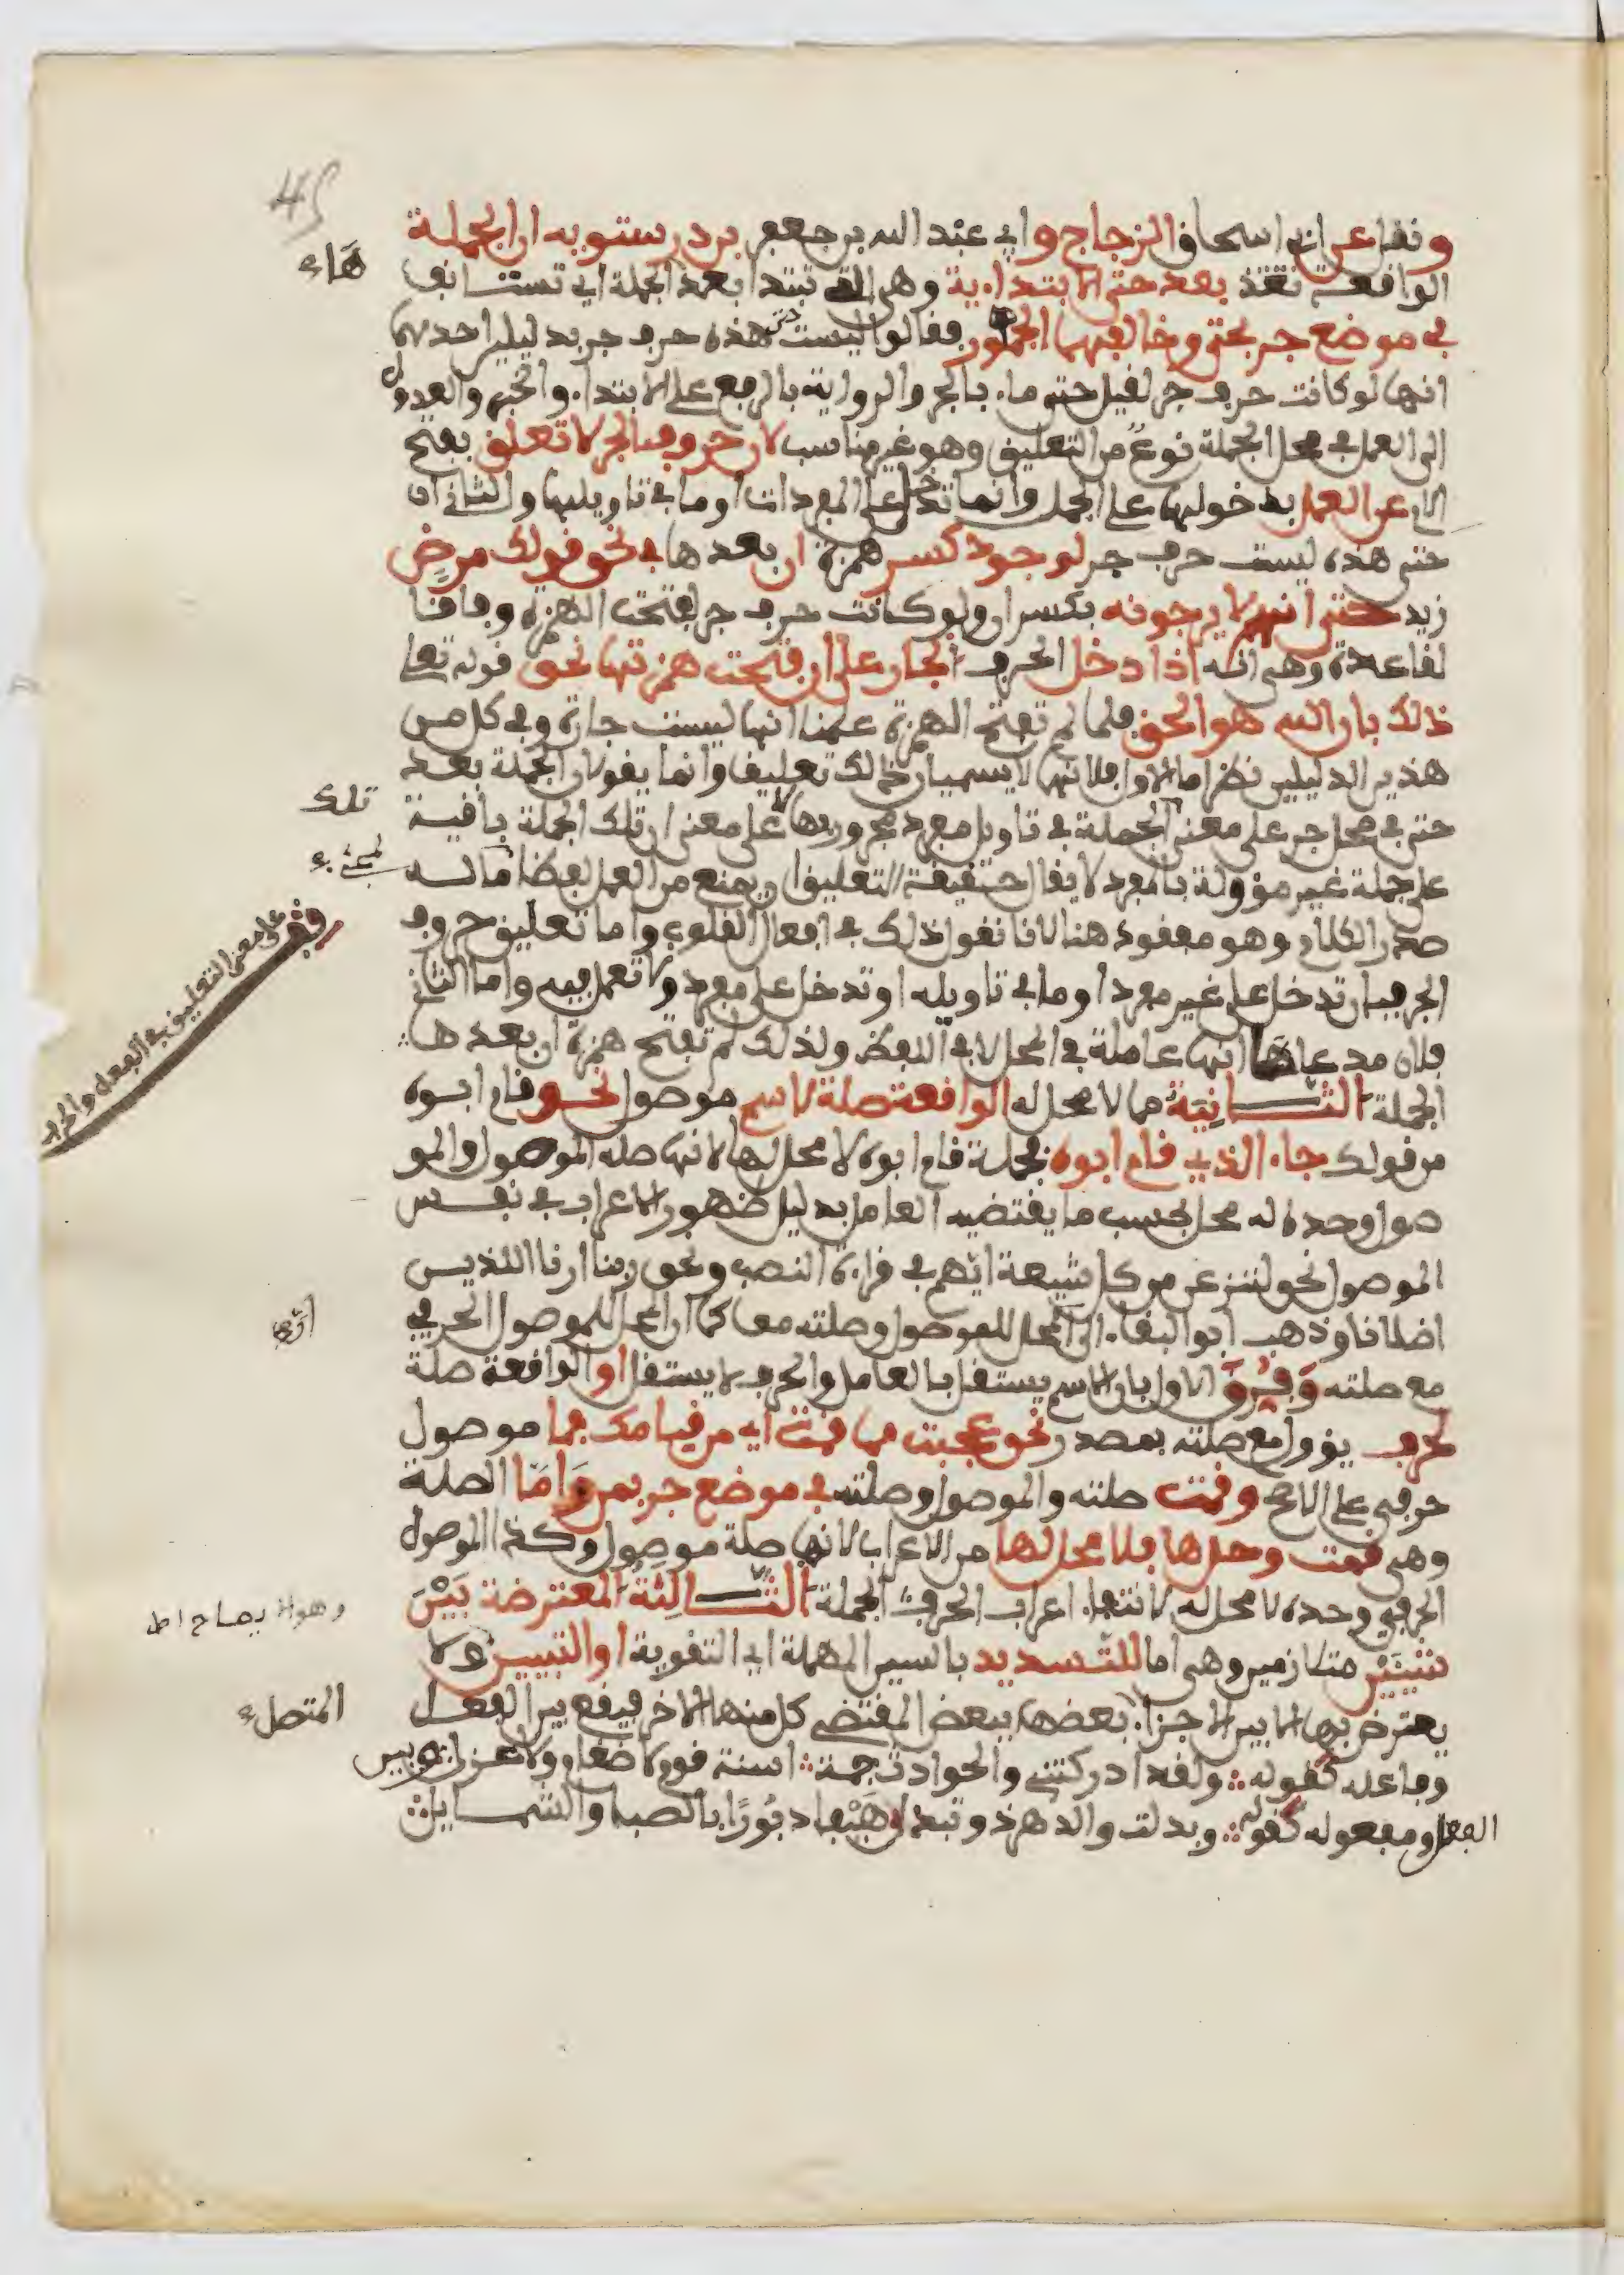 45
ونقل عن ابي اسحاق الزجاج وابي عبد الله بن جعفر بن درستويه ان الجملة
الواقعة بعد حتى الابتداءية وهي التي تبتدا بعد الجملة اي تستانف
هاء
في موضع جر بحتى وخالفهما الجمهور فقالوا ليست حتى هذه حرف جر بدليلين احدهما
انها لو كانت حرف جر لقيل حتى ماء بالجر والرواية بالرفع على الابتداء والخبر والعدول
الى العمل في محل الجملة نوع من التعليق وهو غير مناسب لان حروف الجر لا تعلق بفتح
اللام عن العمل بدخولها على الجمل وانما تدخل على المفردات او ما في تاويلها والثاني ان
حتى هذه ليست حرف جر لوجود كسر همزة ان بعدها في نحو قولك مرض
زيد حتى انهم لا يرجونه بكسر ان ولو كانت حرف جر لفتحت الهمزة وفاقا
لقاعدة وهي انه اذا دخل الحرف الجار على ان فتحت همزتها نحو قوله تعا
ذلك بان الله هو الحق فلما لم تفتح الهمزة علمنا انها ليست جارة وفي كل من
هذين الدليلين نظر اما الاول فلانهما لا يسميان ذلك تعليقا وانما يقولان الجملة بعد
حتى في محل جر على معنى ان الجملة في تاويل مفرد مجرور بها لا على معنى ان تلك الجملة باقية
تلك
على جملة غير مؤولة بالمفرد لا يقال حقيقة التعليق ان يمنع من العمل لفظا ما له
صدر الكلام وهو مفقود هنا لانا نقول ذلك في افعال القلوب واما تعليق حروف
الجر فبان تدخل على غير مفرد او ما في تاويله او تدخل على مفرد ولا تعمل فيه واما الثاني
قف على معنى التعليق في الفعل والحرف
فلان مدعاهما انها عاملة في المحل لا في اللفظ ولذلك لم تفتح همزة ان بعدها
الجملة الثانية مما لا محل له الواقعة صلة لاسم موصول نحو قام ابوه
من قولك جاء الذي قام ابوه فجملة قام ابوه لا محل لها لانها صلة الموصول والمو
صول وحده له محل بحسب ما يقتضيه العامل بدليل ظهور الاعراب في نفس
الموصول نحو لننزعن من كل شيعة ايهم في قراءة النصب ونحو ربنا ارنا اللذين
اضلانا وذهب ابو البقاء الى ان المحل للموصول وصلته معا كما ان المحل للموصول الحرفي
مع صلته وفرق الاول بان الاسم يستقل بالعامل والحرف لا يستقل او الواقعة صلة
لحرف يؤول مع صلته بمصدر نحو عجبت مما قمت اي من قيامك فما موصول
حرفي على الاصح وقمت صلته والموصول وصلته في موضع جر بمن واما الصلة
وهي قمت وحدها فلا محل لها من الاعراب لانها صلة موصول وكذا الموصول
الحرفي وحده لا محل له لانتفاء اعراب الحرف الجملة الثالثة المعترضة بين
شيئين متلازمين وهي اما للتسديد بالسين المهملة اي التقوية او التبيين ولا
يعترض بها الا بين الاجزاء بعضها ببعض المقتضي كل منها الاخر فيقع بين الفعل
المتصل
وفاعله كقوله ولقد ادركتني والحوادث جمة اسنة قوم لا ضعاف ولا عزل وبين
الفعل ومفعوله كقوله وبدلت والدهر ذو تبدل هيفا دبورا بالصبا والشمال